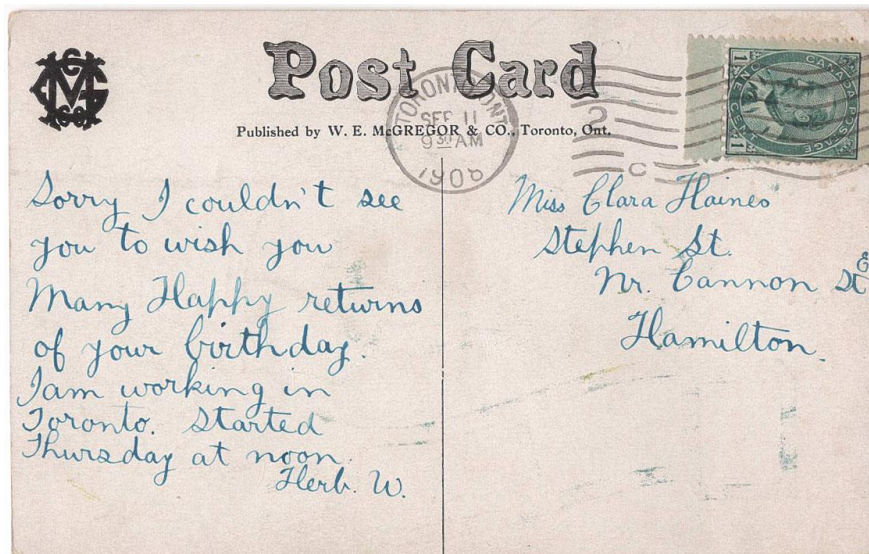 Post Card
Published by W. E. McGREGOR & CO., Toronto, Ont.
TORONTO, ONT
SEP 11
9 30 AM
1908
2
C
CANADA POSTAGE
ONE CENT
1 1
Sorry I couldn't see
you to wish you
Many Happy returns
of your birthday.
I am working in
Toronto. Started
Thursday at noon.
Herb. W.
Miss Clara Haines
Stephen St.
Nr. Cannon St E
Hamilton.